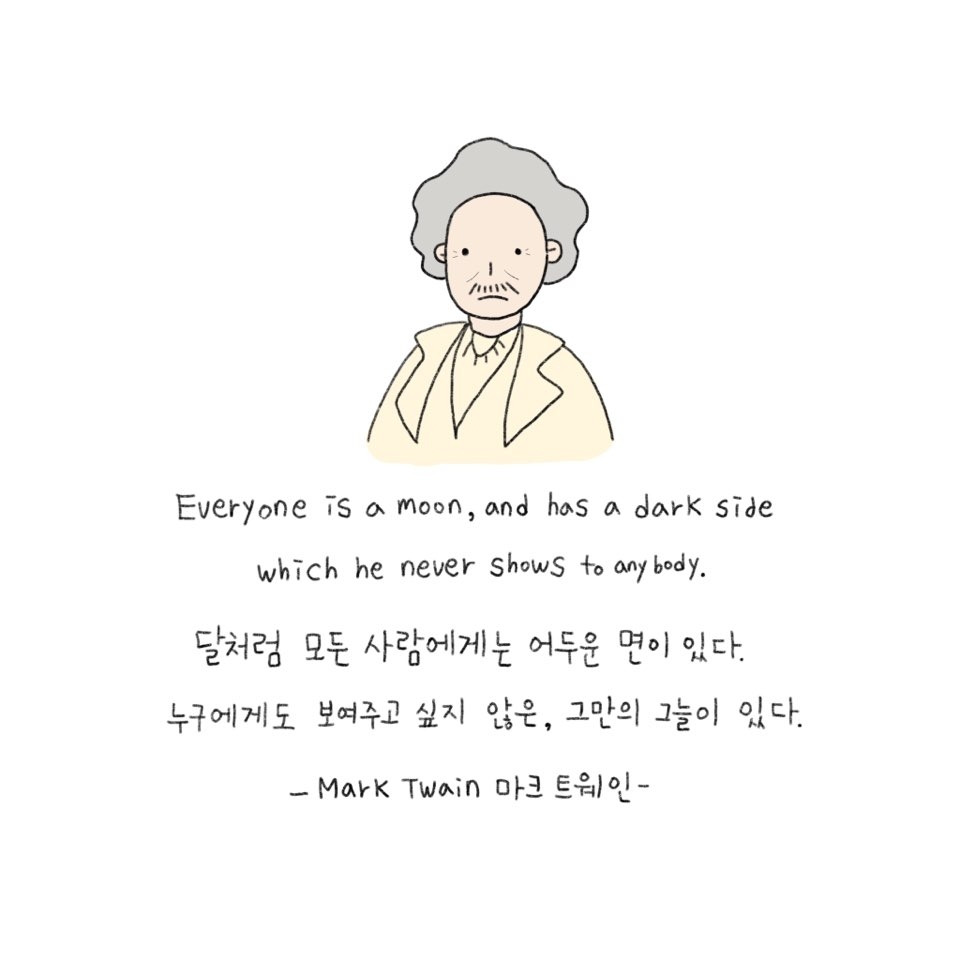 Everyone is a moon, and has a dark side
which he never shows to anybody.
달처럼 모든 사람에게는 어두운 면이 있다.
누구에게도 보여주고 싶지 않은, 그만의 그늘이 있다.
- Mark Twain 마크 트웨인 -